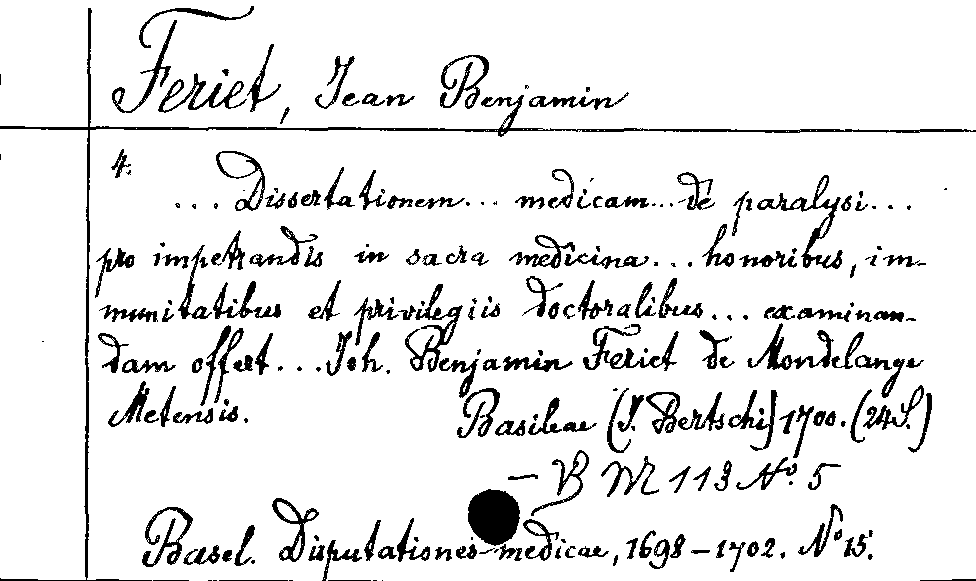 Feriet, Jean Benjamin
4.
... Dissertationem... medicam... de paralysi...
pro impetrandis in sacra medicina... honoribus, im-
munitatibus et privilegiis doctoralibus... examinan-
dam offert... Joh. Benjamin Feriet de Mondelange
Metensis. Basileae (J. Bertschi) 1700. (24 S.)
— B M 113 No. 5
Basel. Disputationes medicae, 1698-1702. No 15.